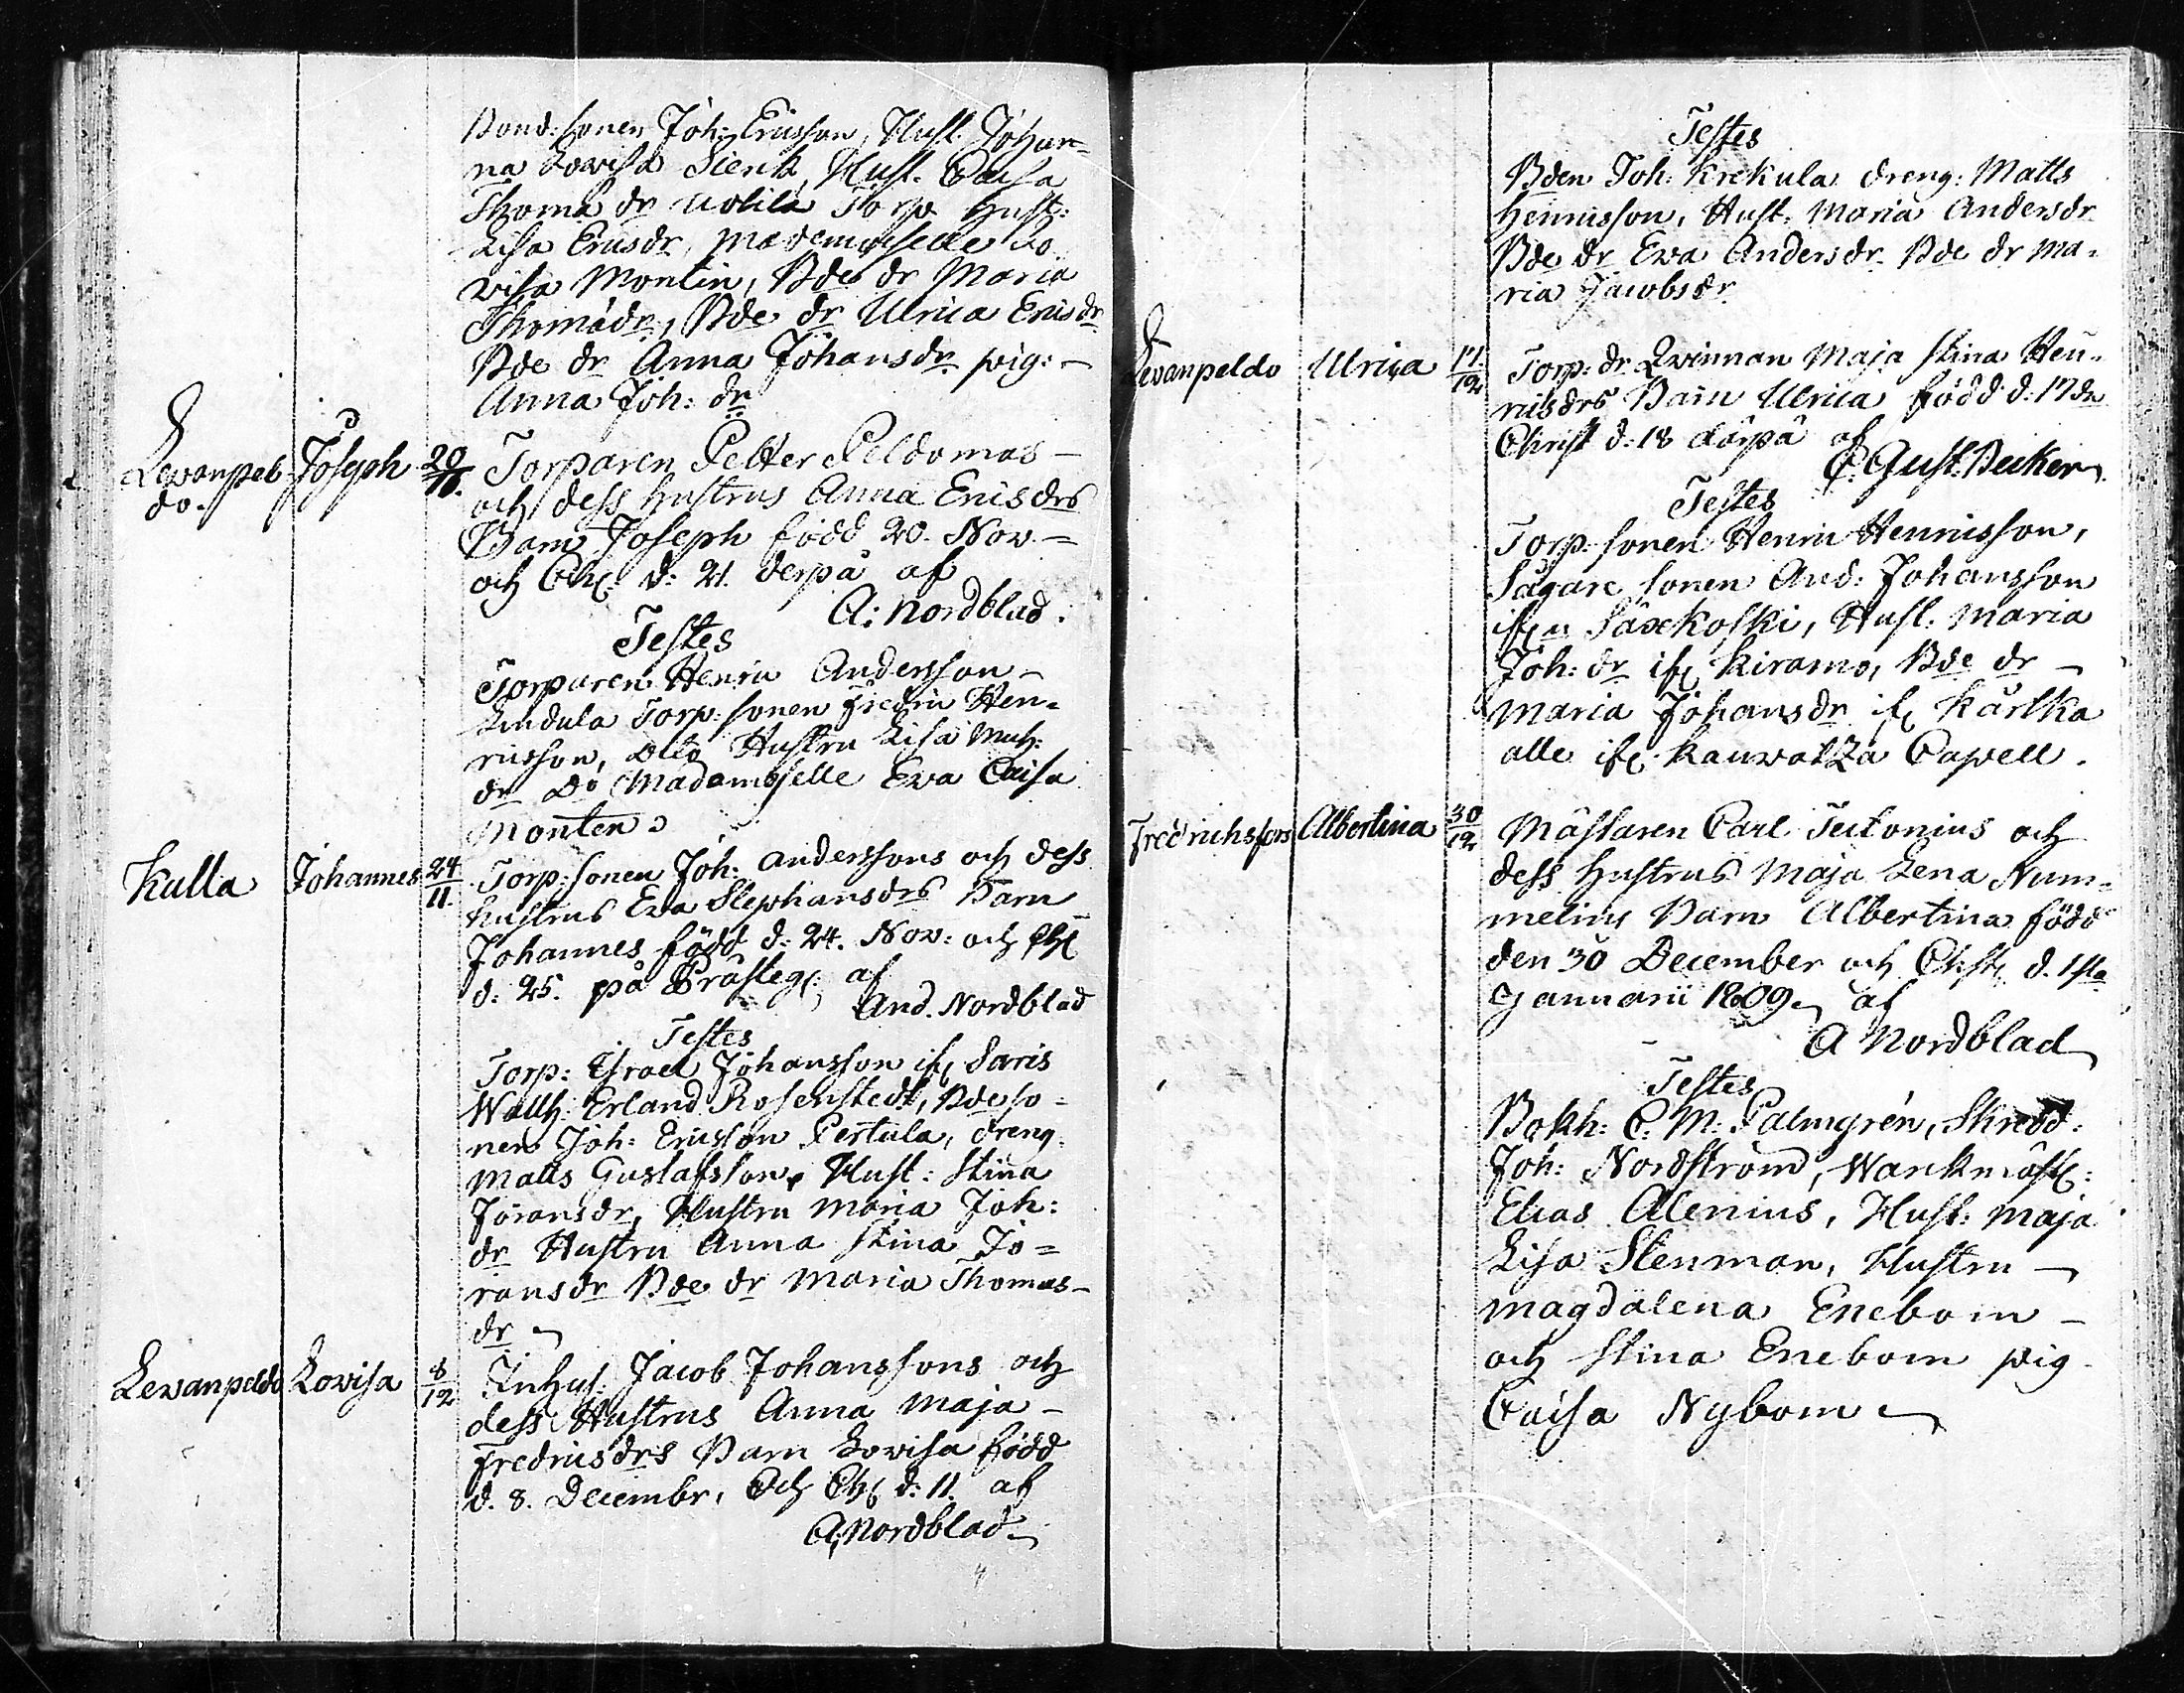 Bond: sonen Joh: Ericsson, Hust. Johan-
na Lovisa Sierck, Hust. Caisa
Thoma dr Uotila Torp Hust:
Lisa Ericsdr, Mademoiselle Lo
visa Montin, Bde dr Maria
Thomådr, Bde dr Ulrica Ericsdr
Bde dr Anna Johansdr pig: -
Anna Joh: dr
Levanpel- Joseph 20/11. Torparen Petter Peldomas -
do. och dess hustrus Anna Ericsdrs
Barn Joseph född 20. Nov. -
och Chr: d: 21. derpå af
A: Nordblad.
Testes
Torparen Henric Andersson -
Lindula Torp: sonen Fredric Hen-
ricsson, Dito Hustru Lisa Math:
dr Do Madamoselle Eva Caisa
Monten
Kulla Johannes 24/11. Torp: sonen Joh: Anderssons och dess
hustrus Eva Stephansdrs Barn
Johannes född d: 24. Nov: och Chr
d: 25. på Prästeg: af
And. Nordblad
Testes
Torp: Israel Johansson ifr Saris
Wallh: Erland Rosenstedt, Bde so-
nen Joh: Ericsson Pertula, dreng.
Matts Gustafsson, Hust: Stina
Joransdr, Hustru Maria Joh:
dr Hustru Anna Stina Jo=
ransdr Bde dr Maria Thomas-
dr
Levanpeldo Lovisa 8/12 Inhus: Jacob Johanssons och
dess Hustrus Anna Maja -
Fredricsdrs Barn Lovisa född
d. 8. Decembr, Och Chr d: 11. af
A: Nordblad
Testes
Bden Joh: Krekula dreng: Matts
Henricsson, Hust. Maria Andersdr
Bde dr Eva Andersdr Bde dr Ma-
ria Jacobsdr
Levanpeldo Ulrica 17/12 Torp: dr Qvinnan Maja Stina Hen-
ricsdrs Barn Ulrica född d: 17 de
Christ d: 18 därpå af
C. Gust. Decker
Testes
Torp: sonen Henric Henricsson,
Sågare sonen And: Johansson
ifrn Säxekoski, Hust. Maria
Joh: dr ifr Kiramo, Bde dr -
Maria Johansdr ifr Karlka
alle ifr Kauvatza Capell.
Fredrichsfors Albertina 30/12 Mästaren Carl Teetonius och
dess Hustrus Maja Lena Num-
melins Barn Albertina född
den 30 December och Chst: d. 1sta
Januarii 1809 af
A Nordblad
Testes
Bokh: C: M: Palmgrén, Skredd:
Joh: Nordström,
Elias Alenius, Hust: Maja
Lisa Stenman, Hustru -
Magdalena Enebom -
och Stina Enebom pig
Caisa Nybom